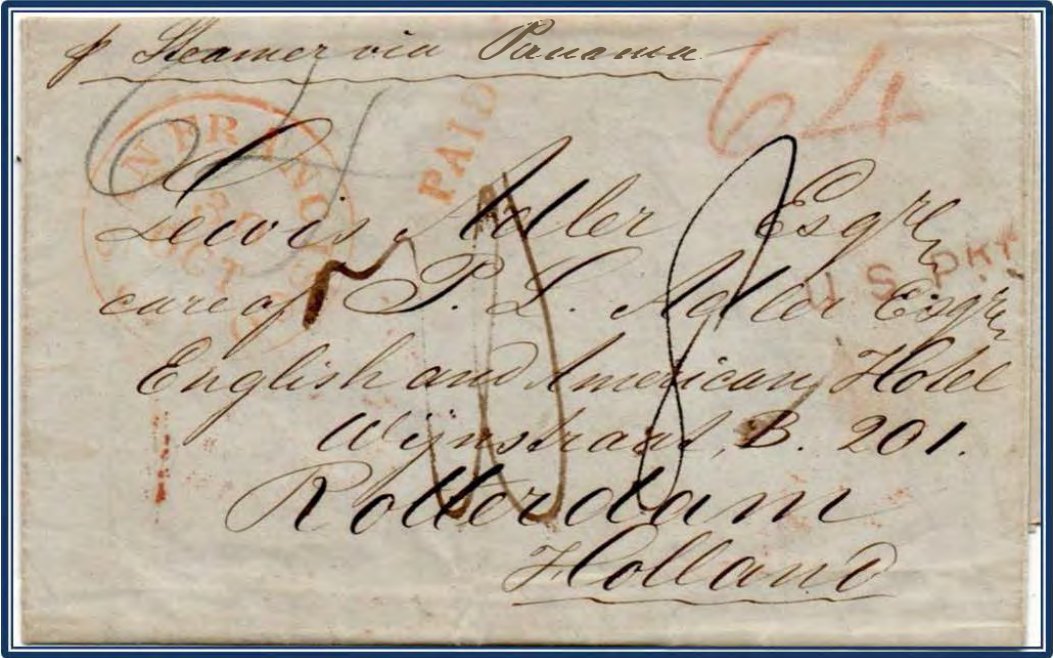 p Steamer via Panama
64
PAID
SAN FRANCISCO
31
OCT
Lewis Adler Esqre
care of P. L. Adler Esqre
U.S.PKT
English and American Hotel
Wijnstraat, B. 201.
Rotterdam
Holland